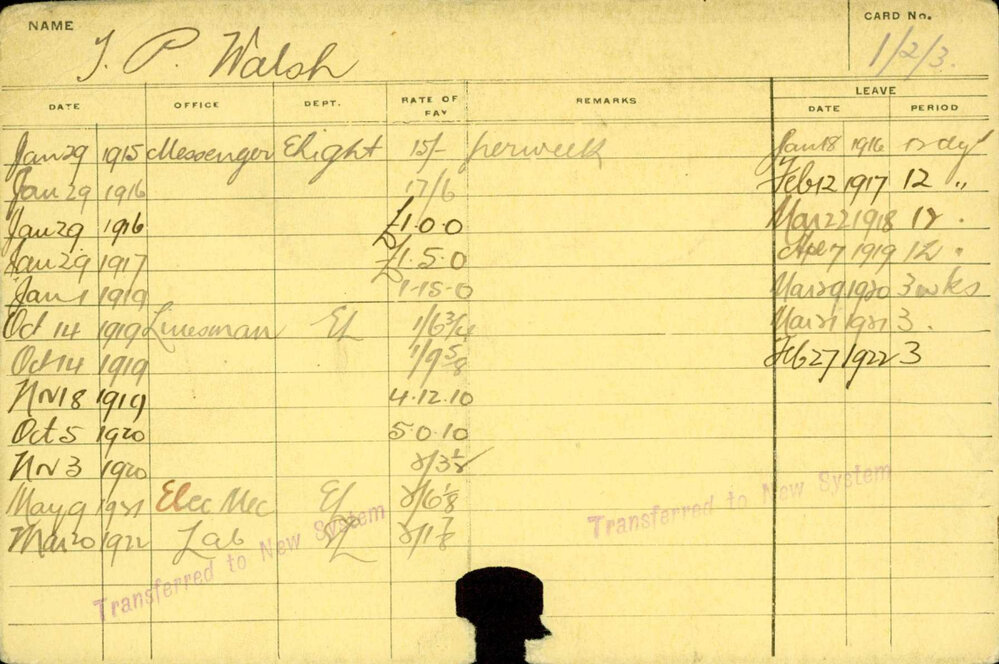 NAME T. P. Walsh CARD No. 1/2/3.
DATE OFFICE DEPT. RATE OF PAY REMARKS LEAVE DATE PERIOD
Jan 29 1915 Messenger Elight 15/- per week Jan 18 1916 12 dys
Jan 29 1916 17/6 Feb 12 1917 12 "
Jan 29 1916 £1.0.0 Mar 22 1918 12 "
Jan 29 1917 £1.5.0 Ap 7 1919 12 "
Jan 1 1919 1-15-0 Mar 29 1920 3 wks
Oct 14 1919 Linesman El 1/6¾ Mar 21 1921 3.
Oct 14 1919 1/9⅝ Feb 27 1922 3
Nov 18 1919 4.12.10
Oct 5 1920 5.0.10
Nov 3 1920 2/3½
May 9 1921 Elec Mec El 2/6⅛
Mar 20 1922 Lab El 2/1⅞
Transferred to New System
Transferred to New System